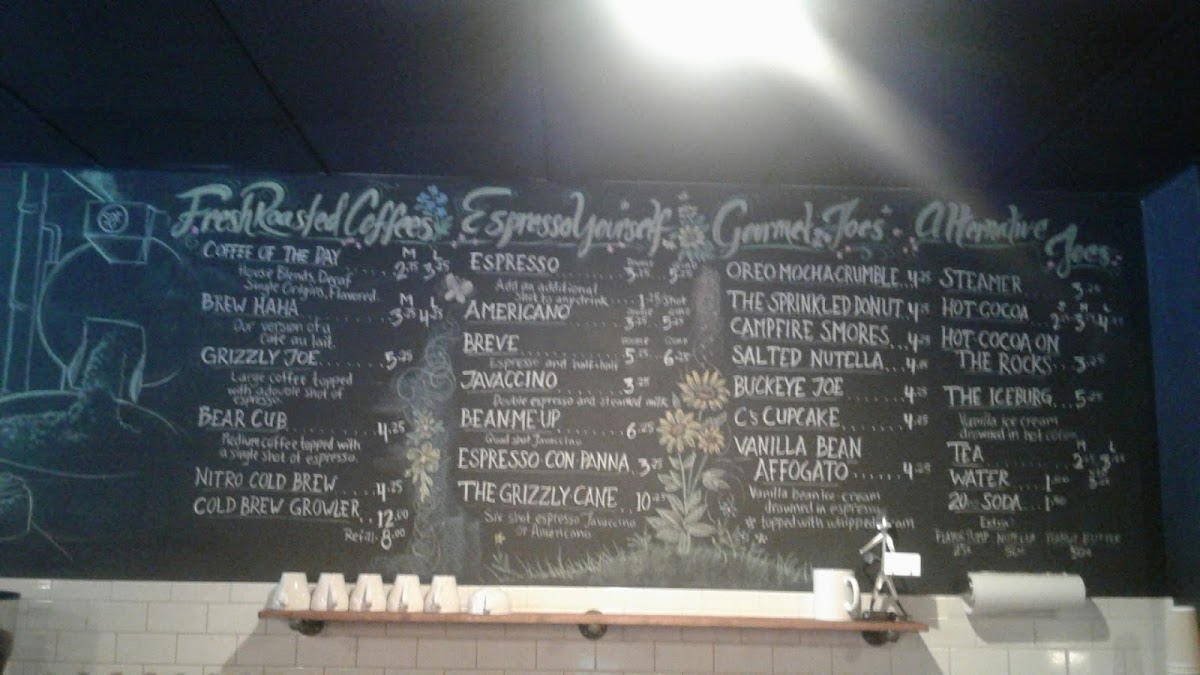 Fresh Roasted Coffees
COFFEE OF THE DAY M L
House Blends, Decaf 2.75 3.25
Single Origins, Flavored.
BREW HAHA M L
3.75 4.25
Our version of a
Cafe au lait.
GRIZZLY JOE 5.25
Large coffee topped
with a double shot of
espresso.
BEAR CUB 4.25
Medium coffee topped with
a single shot of espresso.
NITRO COLD BREW 4.25
COLD BREW GROWLER 12.00
Refill 8.00
Espresso Yourself
ESPRESSO 3.25
Add an additional
Shot to any drink 1.25 Shot
AMERICANO 3.25 5.25
BREVE 5.25 6.25
Espresso and half+half
JAVACCINO 3.25
Double espresso and steamed milk
BEAN ME UP 6.25
Quad shot Javaccino
ESPRESSO CON PANNA 3.25
THE GRIZZLY CANE 10.25
Six shot espresso Javaccino
or Americano
Gourmet Joes
OREO MOCHA CRUMBLE 4.25
THE SPRINKLED DONUT 4.25
CAMPFIRE SMORES 4.25
SALTED NUTELLA 4.25
BUCKEYE JOE 4.25
C's CUPCAKE 4.25
VANILLA BEAN
AFFOGATO 4.25
Vanilla bean ice cream
drowned in espresso
topped with whipped cream
Alternative
Joes
STEAMER 3.25
HOT COCOA S M L
HOT COCOA ON
THE ROCKS 3.25
THE ICEBURG 5.25
Vanilla ice cream
drowned in hot cocoa
TEA M L
WATER 1.00
20oz SODA
Extra!
FLAVOR PUMP NUTELLA PEANUT BUTTER
50¢ 50¢